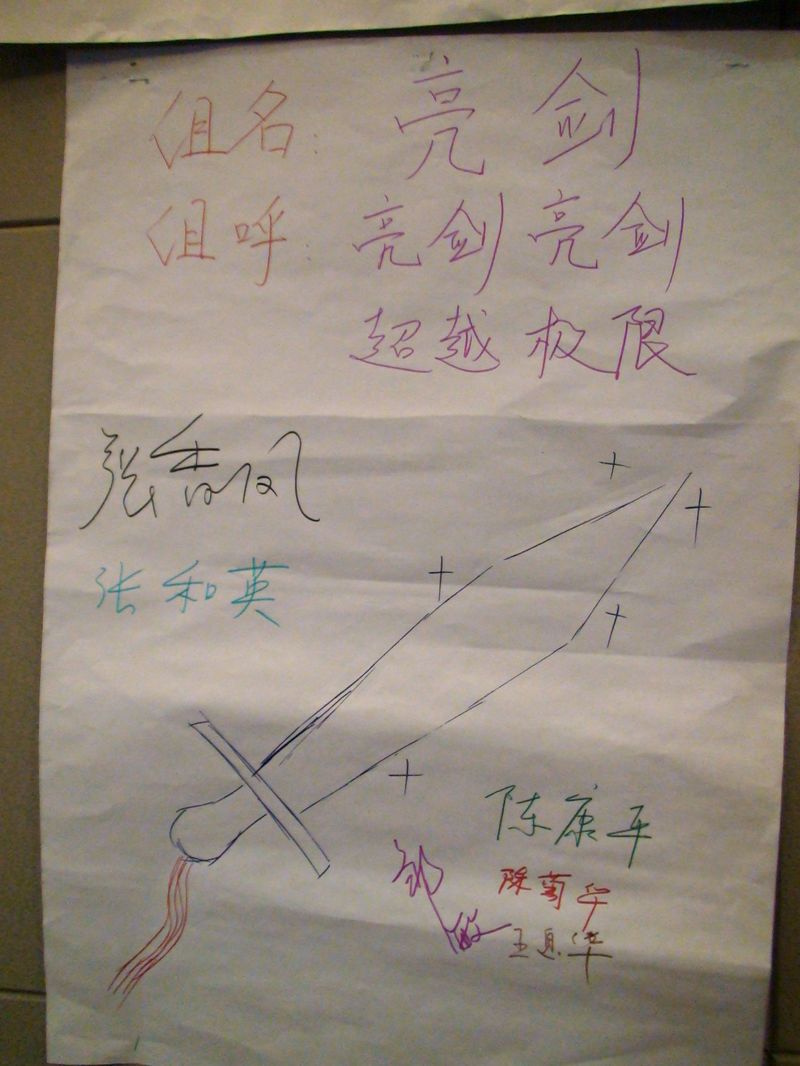 组名: 亮剑
组呼: 亮剑亮剑
超越极限
张香凤
张和英
陈康平
陈菊华
敏
王息华